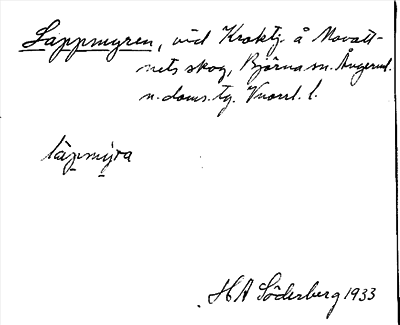 Lappmyren, vid Kroktj. å Movatt-
nets skog, Björna sn. Ångerml.
n. doms. tg. Vnorrl. l.
lapmyra
HA Söderberg 1933